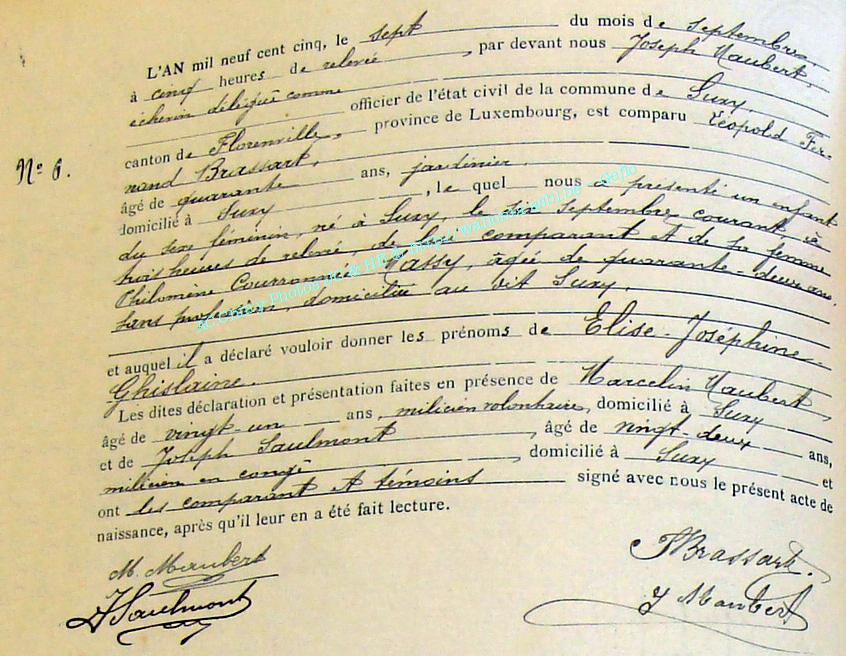 L'AN mil neuf cent cinq, le sept du mois de septembre,
à cinq heures de relevée, par devant nous Joseph Maubert,
échevin délégué comme officier de l'état civil de la commune de Suxy,
canton de Florenville, province de Luxembourg, est comparu Léopold Fer-
N° 6.
nand Brassart,
âgé de quarante ans, jardinier
domicilié à Suxy, le quel nous a présenté un enfant
du sexe féminin, né à Suxy, le six septembre courant, à
trois heures de relevée, de lui comparant et de sa femme
Philomène Couronnée Massy, âgée de quarante-deux ans,
sans profession, domiciliée au dit Suxy,
et auquel il a déclaré vouloir donner les prénoms de Elise-Joséphine-
Ghislaine.
Les dites déclaration et présentation faites en présence de Marcelin Maubert,
âgé de vingt-un ans, milicien volontaire, domicilié à Suxy
et de Joseph Saulmont, âgé de vingt deux ans,
milicien en congé, domicilié à Suxy et
ont les comparant et témoins signé avec nous le présent acte de
naissance, après qu'il leur en a été fait lecture.
M. Maubert
FBrassart.
J Saulmont
J Maubert